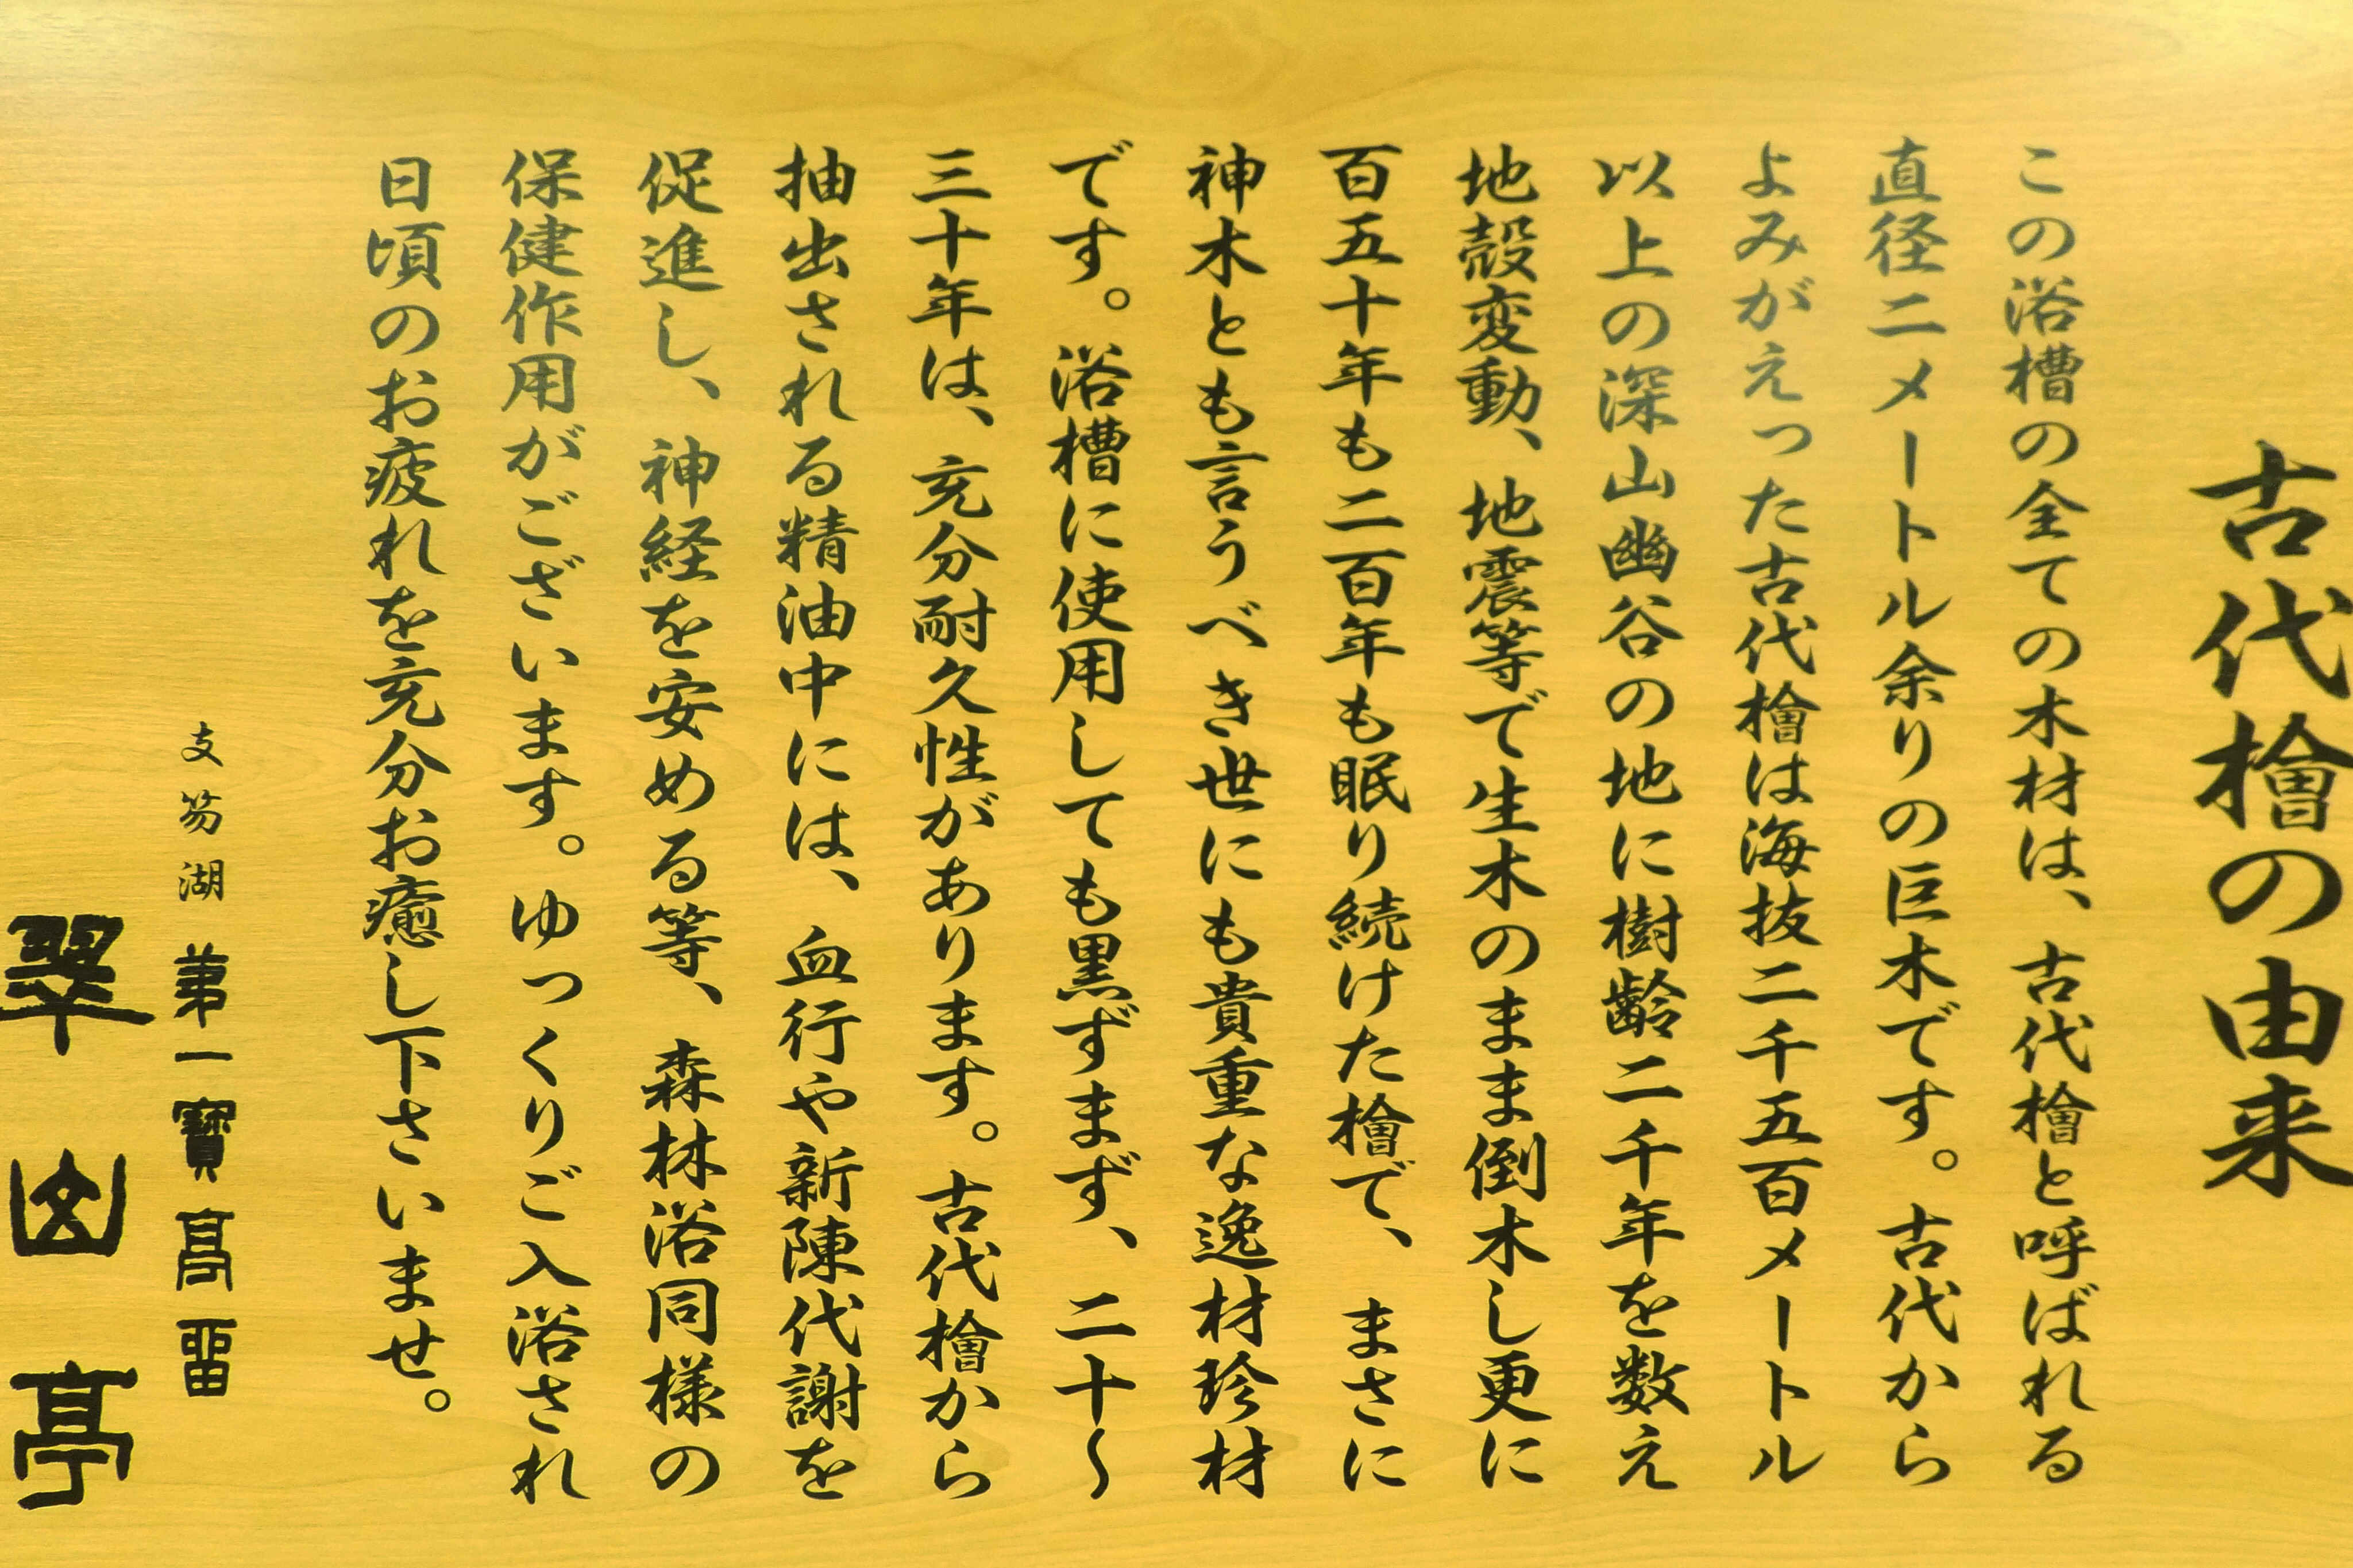 古代檜の由来
この浴槽の全ての木材は、古代檜と呼ばれる
直径二メートル余りの巨木です。古代から
よみがえった古代檜は海抜二千五百メートル
以上の深山幽谷の地に樹齢二千年を数え
地殻変動、地震等で生木のまま倒木し更に
百五十年も二百年も眠り続けた檜で、まさに
神木とも言うべき世にも貴重な逸材珍材
です。浴槽に使用しても黒ずまず、二十〜
三十年は、充分耐久性があります。古代檜から
抽出される精油中には、血行や新陳代謝を
促進し、神経を安める等、森林浴同様の
保健作用がございます。ゆっくりご入浴され
日頃のお疲れを充分お癒し下さいませ。
支笏湖 第一寳亭留
翠山亭